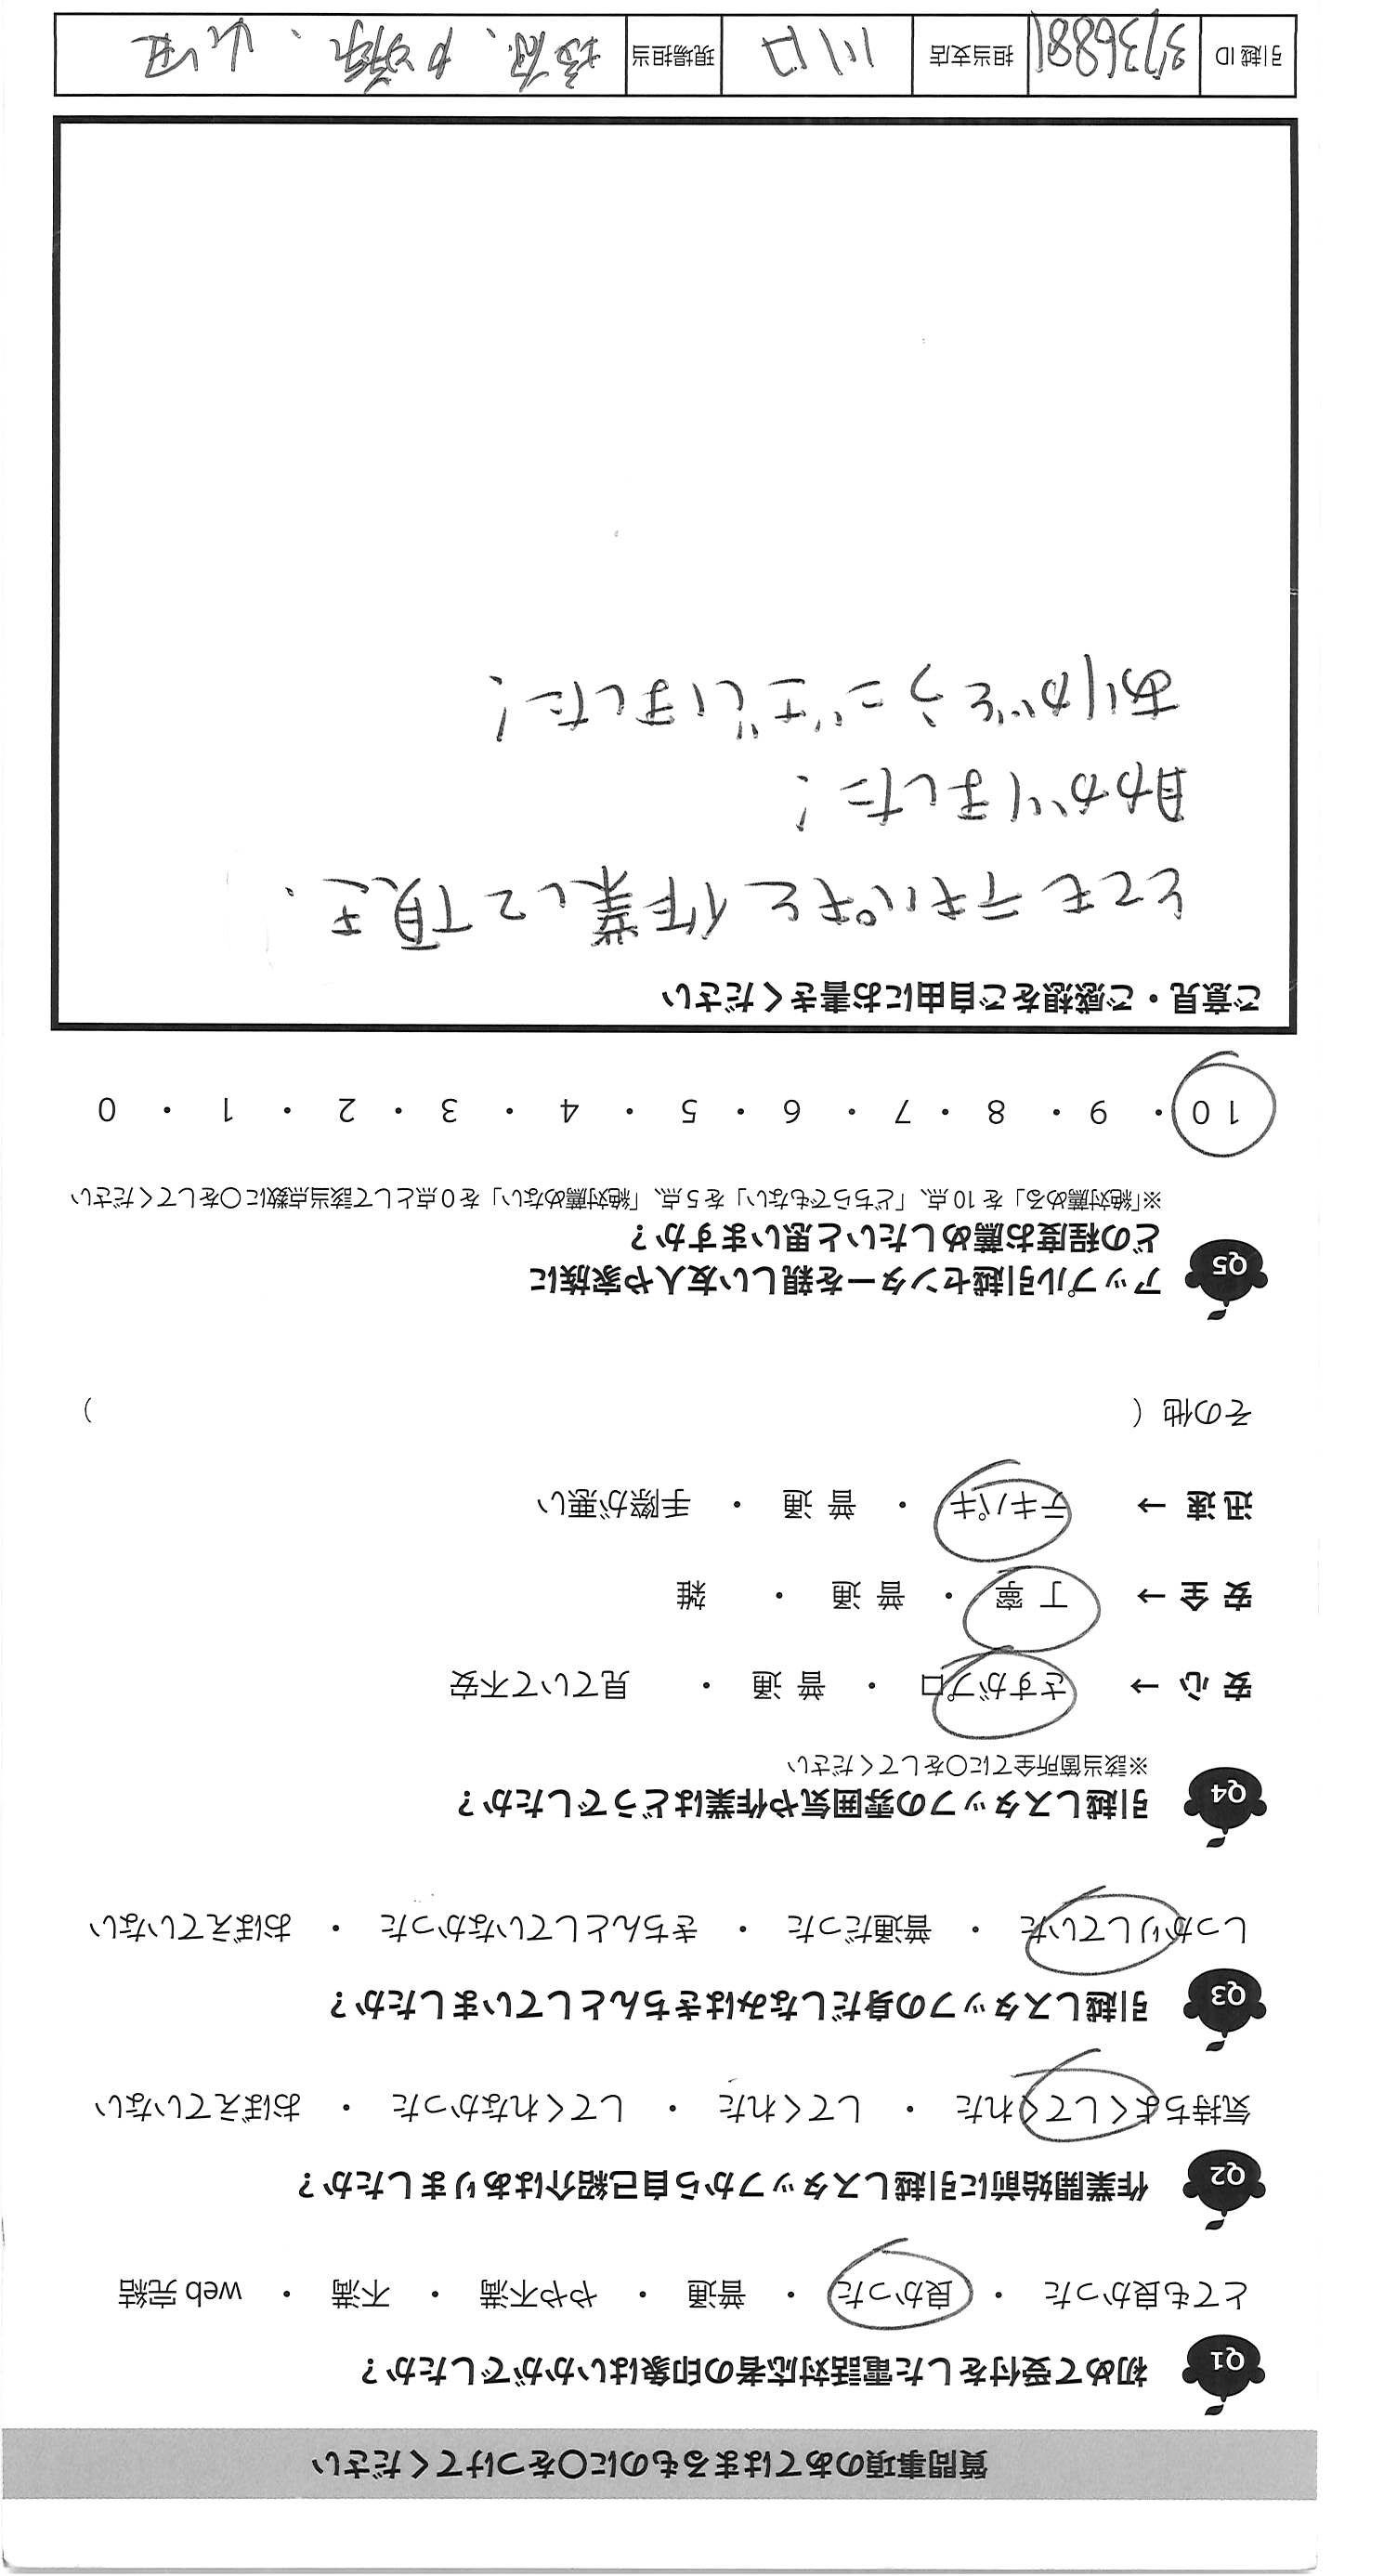 質問事項のあてはまるものに○をつけてください
Q1 初めて受付をした電話対応者の印象はいかがでしたか？
とても良かった ・ 良かった ・ 普通 ・ やや不満 ・ 不満 ・ web 完結
Q2 作業開始前に引越しスタッフから自己紹介はありましたか？
気持ちよくしてくれた ・ してくれた ・ してくれなかった ・ おぼえていない
Q3 引越しスタッフの身だしなみはきちんとしていましたか？
しっかりしていた ・ 普通だった ・ きちんとしていなかった ・ おぼえていない
Q4 引越しスタッフの雰囲気や作業はどうでしたか？
※該当箇所全てに○をしてください
安心 → さすがプロ ・ 普通 ・ 見ていて不安
安全 → 丁寧 ・ 普通 ・ 雑
迅速 → テキパキ ・ 普通 ・ 手際が悪い
その他 ( )
Q5 アップル引越センターを親しい友人や家族に
どの程度お薦めしたいと思いますか？
※「絶対薦める」を 10 点、「どちらでもない」を 5 点、「絶対薦めない」を 0 点として該当点数に○をしてください
10 ・ 9 ・ 8 ・ 7 ・ 6 ・ 5 ・ 4 ・ 3 ・ 2 ・ 1 ・ 0
ご意見・ご感想をご自由にお書きください
とてもテキパキと作業して頂き、
助かりました！
ありがとうございました！
引越 ID 3736881 担当支店 川口 現場担当